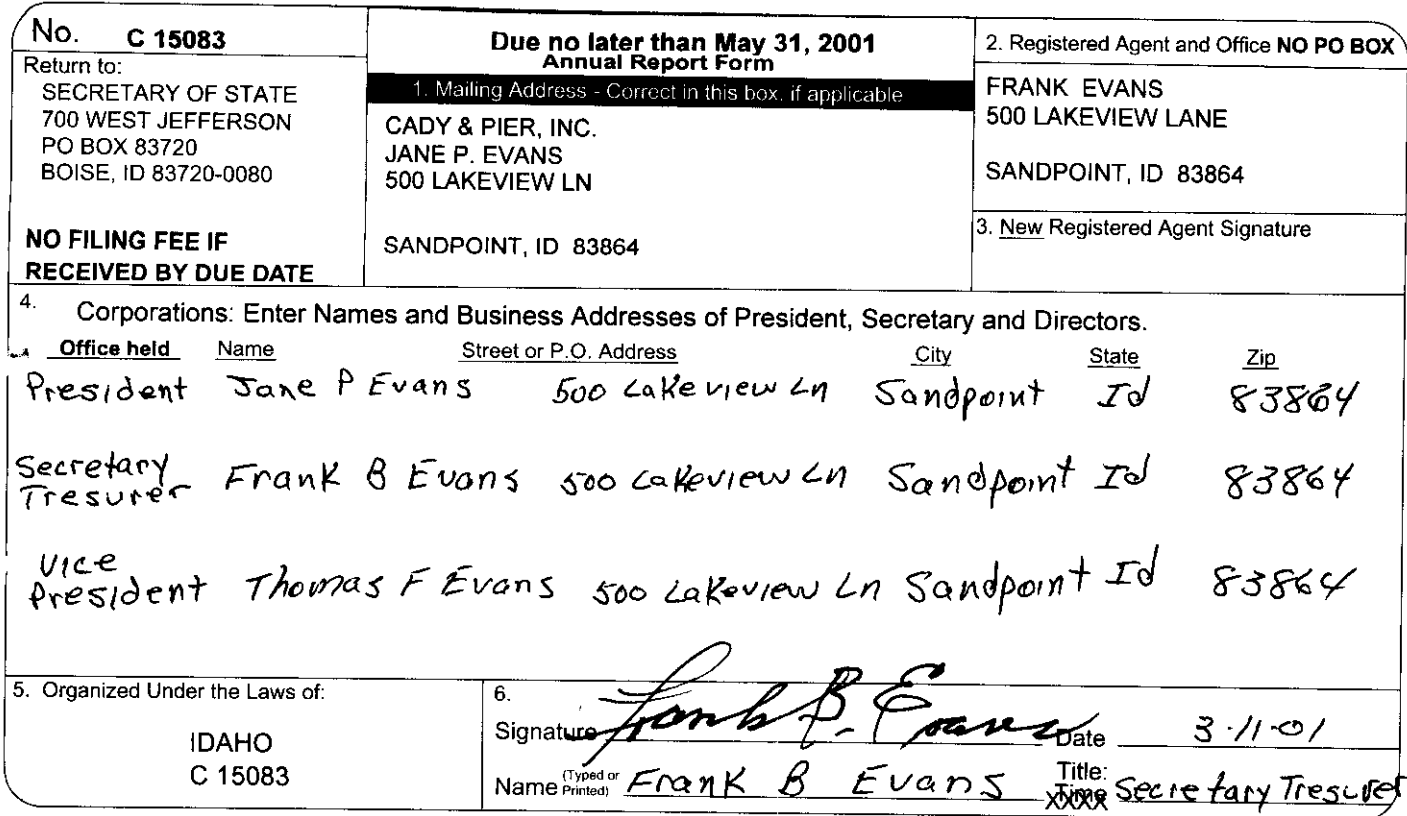 No. C 15083
Return to:
SECRETARY OF STATE
700 WEST JEFFERSON
PO BOX 83720
BOISE, ID 83720-0080
NO FILING FEE IF
RECEIVED BY DUE DATE
Due no later than May 31, 2001
Annual Report Form
1. Mailing Address - Correct in this box, if applicable
CADY & PIER, INC.
JANE P. EVANS
500 LAKEVIEW LN
SANDPOINT, ID 83864
2. Registered Agent and Office NO PO BOX
FRANK EVANS
500 LAKEVIEW LANE
SANDPOINT, ID 83864
3. New Registered Agent Signature
4. Corporations: Enter Names and Business Addresses of President, Secretary and Directors.
Office held Name Street or P.O. Address City State Zip
President Jane P Evans 500 Lakeview Ln Sandpoint Id 83864
Secretary
Tresurer Frank B Evans 500 Lakeview Ln Sandpoint Id 83864
Vice
President Thomas F Evans 500 Lakeview Ln Sandpoint Id 83864
5. Organized Under the Laws of:
IDAHO
C 15083
6.
Signature Frank B. Evans Date 3-11-01
Name (Typed or Printed) Frank B Evans Title: Time Secretary Tresurer